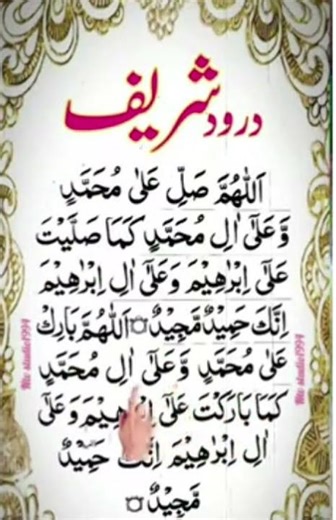 درود شریف
اَللّٰهُمَّ صَلِّ عَلٰى مُحَمَّدٍ
وَّعَلٰٓى اٰلِ مُحَمَّدٍ كَمَا صَلَّيْتَ
عَلٰٓى اِبْرٰهِيْمَ وَعَلٰٓى اٰلِ اِبْرٰهِيْمَ
اِنَّكَ حَمِيْدٌ مَّجِيْدٌ۝ اَللّٰهُمَّ بَارِكْ
عَلٰى مُحَمَّدٍ وَّعَلٰٓى اٰلِ مُحَمَّدٍ
كَمَا بَارَكْتَ عَلٰٓى اِبْرٰهِيْمَ وَعَلٰٓى
اٰلِ اِبْرٰهِيْمَ اِنَّكَ حَمِيْدٌ
مَّجِيْدٌ۝